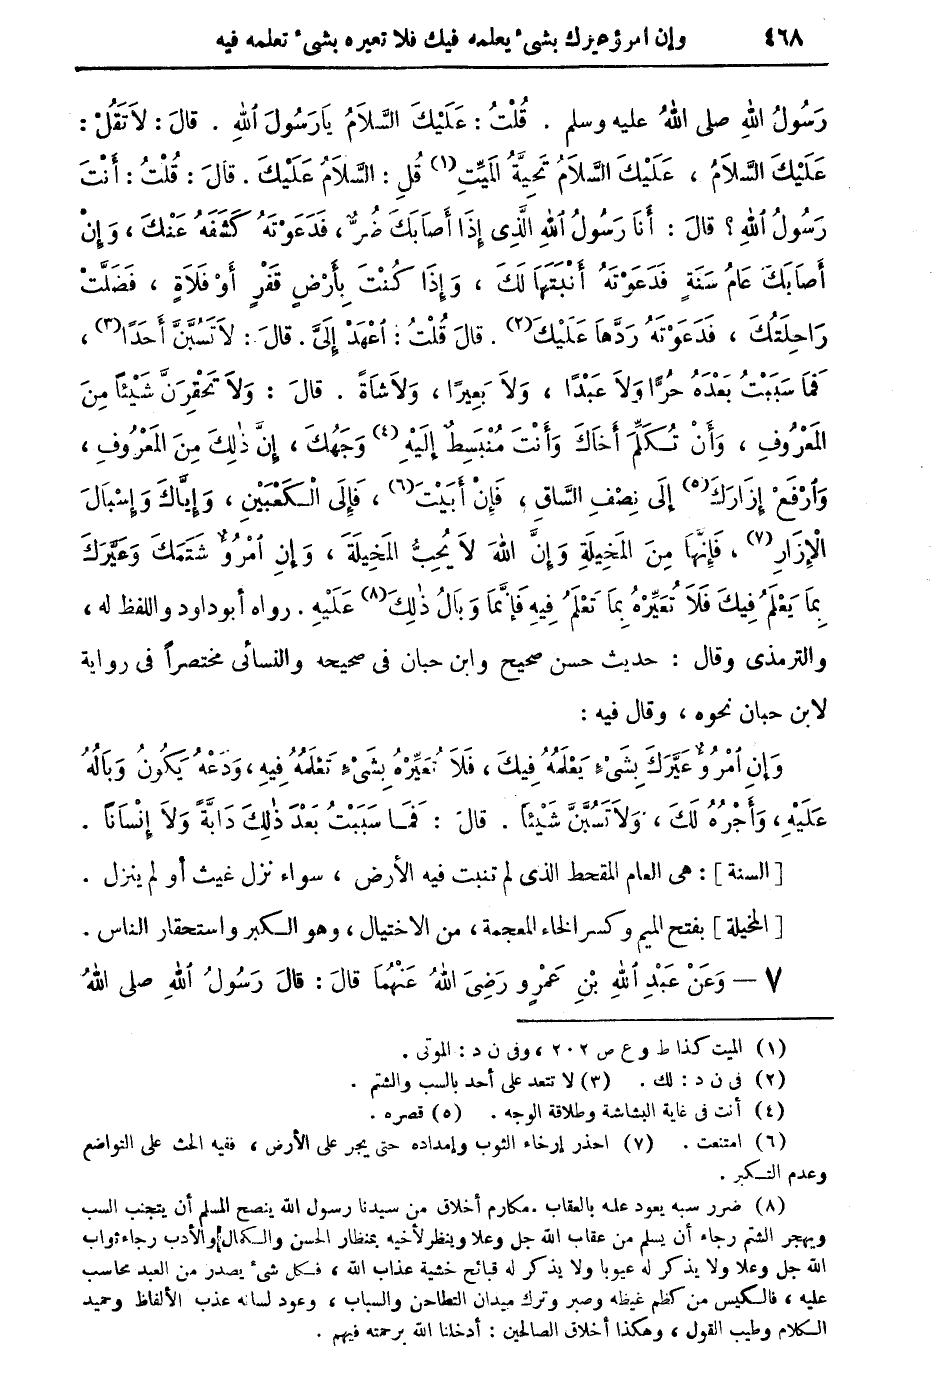 ٤٦٨ وإن امرؤ عيرك بشىء يعلمه فيك فلا تعيره بشىء تعلمه فيه
رَسُولُ اللهِ صلى اللهُ عليه وسلم . قُلْتُ : عَلَيْكَ السَّلاَمُ يَارَسُولَ ٱللهِ . قالَ : لاَ تَقُلْ :
عَلَيْكَ السَّلاَمُ ، عَلَيْكَ السَّلاَمُ تَحِيَّةُ المَيِّتِ (١) قُلِ : السَّلاَمُ عَلَيْكَ . قالَ : قُلْتُ : أَنْتَ
رَسُولُ ٱللهِ ؟ قالَ : أَنَا رَسُولُ ٱللهِ الَّذِى إِذَا أَصَابَكَ ضُرٌّ ، فَدَعَوْتَهُ كَشَفَهُ عَنْكَ ، وَإِنْ
أَصَابَكَ عَامُ سَنَةٍ فَدَعَوْتَهُ أَنْبَتَهَا لَكَ ، وَإِذَا كُنْتَ بِأَرْضٍ قَفْرٍ أَوْ فَلاَةٍ ، فَضَلَّتْ
رَاحِلَتُكَ ، فَدَعَوْتَهُ رَدَّهَا عَلَيْكَ (٢) . قالَ قُلْتُ : ٱعْهَدْ إِلَىَّ . قالَ : لاَ تَسُبَّنَّ أَحَدًا (٣) ،
فَمَا سَبَبْتُ بَعْدَهُ حُرًّا وَلاَ عَبْدًا ، وَلاَ بَعِيرًا ، وَلاَ شَاةً . قالَ : وَلاَ تَحْقِرَنَّ شَيْئًا مِنَ
المَعْرُوفِ ، وَأَنْ تُكَلِّمَ أَخَاكَ وَأَنْتَ مُنْبَسِطٌ إِلَيْهِ (٤) وَجْهُكَ ، إِنَّ ذٰلِكَ مِنَ المَعْرُوفِ ،
وَٱرْفَعْ إِزَارَكَ (٥) إِلَى نِصْفِ السَّاقِ ، فَإِنْ أَبَيْتَ (٦) ، فَإِلَى الْكَعْبَيْنِ ، وَإِيَّاكَ وَإِسْبَالَ
الْإِزَارِ (٧) ، فَإِنَّهَا مِنَ المَخِيلَةِ وَإِنَّ اللهَ لاَ يُحِبُّ المَخِيلَةَ ، وَإِنِ ٱمْرُؤٌ شَتَمَكَ وَعَيَّرَكَ
بِمَا يَعْلَمُ فِيكَ فَلاَ تُعَيِّرْهُ بِمَا تَعْلَمُ فِيهِ فَإِنَّمَا وَبَالُ ذٰلِكَ (٨) عَلَيْهِ . رواه أبو داود واللفظ له ،
والترمذى وقال : حديث حسن صحيح وابن حبان فى صحيحه والنسائى مختصراً فى رواية
لابن حبان نحوه ، وقال فيه :
وَإِنِ ٱمْرُؤٌ عَيَّرَكَ بِشَىْءٍ يَعْلَمُهُ فِيكَ ، فَلاَ تُعَيِّرْهُ بِشَىْءٍ تَعْلَمُهُ فِيهِ ، وَدَعْهُ يَكُونُ وَبَالُهُ
عَلَيْهِ ، وَأَجْرُهُ لَكَ ، وَلاَ تَسُبَّنَّ شَيْئًا . قالَ : فَمَا سَبَبْتُ بَعْدَ ذٰلِكَ دَابَّةً وَلاَ إِنْسَانًا .
[ السنة ] : هى العام المقحط الذى لم تنبت فيه الأرض ، سواء نزل غيث أو لم ينزل .
[ المخيلة ] بفتح الميم وكسر الخاء المعجمة ، من الاختيال ، وهو الكبر واستحقار الناس .
٧ — وَعَنْ عَبْدِ اللهِ بْنِ عَمْرٍو رَضِىَ اللهُ عَنْهُمَا قالَ : قالَ رَسُولُ اللهِ صلى اللهُ
(١) الميت كذا ط و ع ص ٢٠٢ ، وفى ن د : الموتى .
(٢) فى ن د : لك . (٣) لا تتعد على أحد بالسب والشتم .
(٤) أنت فى غاية البشاشة وطلاقة الوجه . (٥) قصره .
(٦) امتنعت . (٧) احذر إرخاء الثوب وإمداده حتى يجر على الأرض ، ففيه الحث على التواضع
وعدم التكبر .
(٨) ضرر سبه يعود عليه بالعقاب . مكارم أخلاق من سيدنا رسول الله ينصح المسلم أن يتجنب السب
ويهجر الشتم رجاء أن يسلم من عقاب الله جل وعلا وينظر لأخيه بمنظار الحسن والكمال والأدب رجاء ثواب
الله جل وعلا ولا يذكر له عيوبا ولا يذكر له قبائح خشية عذاب الله ، فكل شىء يصدر من العبد محاسب
عليه ، فالكيس من كظم غيظه وصبر وترك ميدان التطاحن والسباب ، وعود لسانه عذب الألفاظ وحميد
الكلام وطيب القول ، وهكذا أخلاق الصالحين : أدخلنا الله برحمته فيهم .